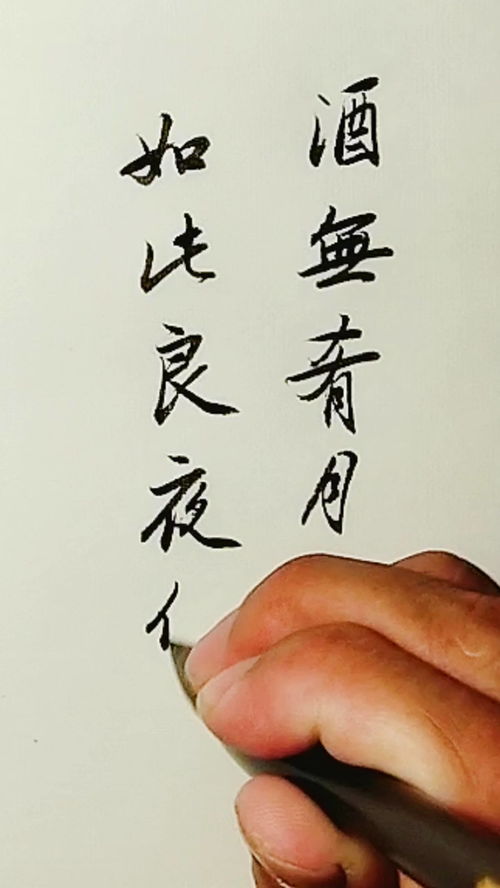 酒無肴月
如此良夜